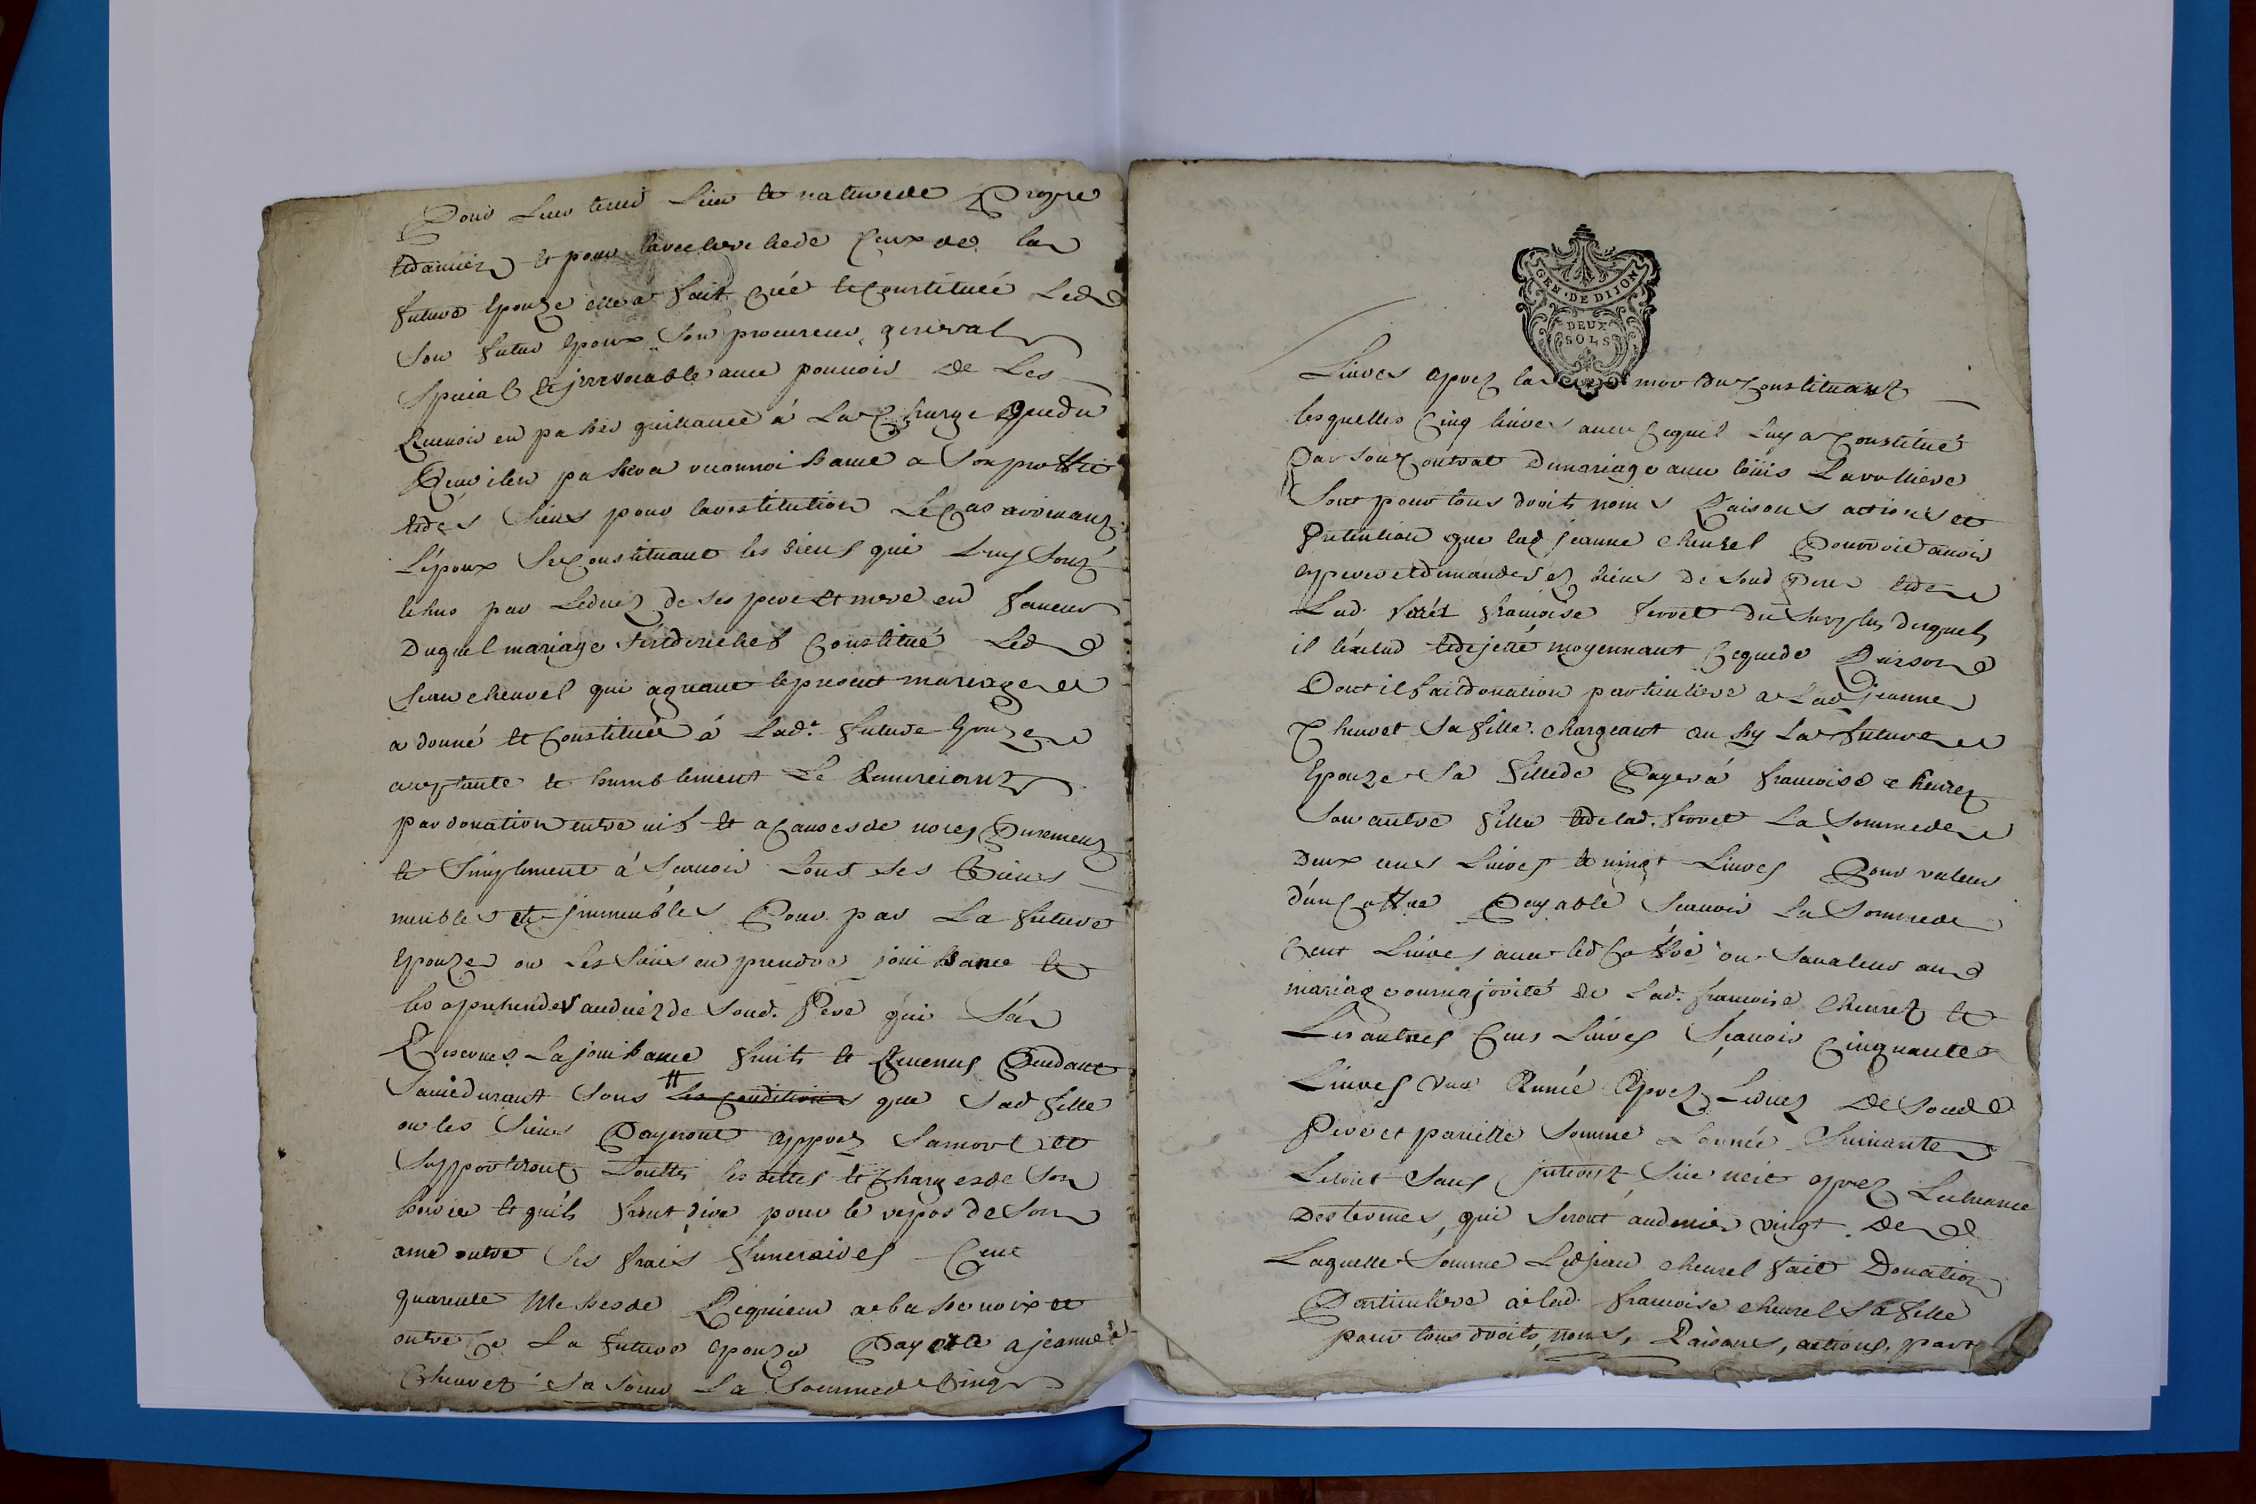 Pour Luy tenir Lieu et nature de Propre
et daniers et pour la recherche de Ceux de la
future Epouze elle a fait Créé et Constitué Led
Son futur Epoux Son procureur general
Special et jrrevocable avec pouvoir de Les
Recevoir en passer quittance á La Charge que du
Reçeu il en passera reconnoissance a Son proffit
et des Siens pour la restitution Le Cas arrivant
L'époux Se Constituant les biens qui Luy Sont
echus par Ledecez de Ses pere et mere en faveur
Duquel mariage Constitué Led
Jean cheurel qui agreant le present mariage
a donné et Constitué á Lad.e future Epouze
acceptante et humblement Le Remerciant
par donation entre vifs et a Cause de noces Purement
et Simplement á Scavoir tout Ses Biens
meubles et jmmeubles Pour par La future
Epouze ou Les Siens en prendre jouissance et
les aprehender au decez de Sond. Pere qui S'en
Reserve La jouissance fruits et Revenus Pendant
Sa vie durant Sous les conditions que Sad fille
ou les Siens Payeront appres Sa mort et
Supporteront toutes les dettes et Charges de Son
hoirie et qu'ils front dire pour le repos de Son
ame outre Ses frais funeraires Cent
quarente Messes de Requiem a basse voix et
outre Ce La future Epouze Payera a jeanne
Cheurel Sa Soeur La Somme de Cinq
GEN. DE DIJON
DEUX
SOLS
Livres aprez la mort du Constituant
lesquelles Cinq livres avec Ce qu'il Luy a Constitué
Par Son Contrat De mariage avec loüis Lavolliere
Sont pour tous droits noms Raisons actions et
Pretention que lad jeanne cheurel Pourroit avoir
esperer et demander ez biens De Sond Pere et de
Lad. françoise ferret Du Surplus Duquel
il l'exclud et dejetté moyennant Ce que de
Dont il fait donation particuliere a Lad jeanne
Cheurel Sa fille. chargeant aussy La future
Epouze Sa fille de Payer á francoise cheurel
Son autre fille et de lad. ferret La Somme de
Deux cens Livres et vingt Livres Pour valeur
d'un Coffre Payable Scavoir La Somme de
Cent Livres avec led Coffre ou Sa valeur au
mariage ou majorité de Lad. francoise Cheurel et
Les autres Cens Livres Sçavoir Cinquante
Livres une Année Aprez Ledecez De Soud
Pere et pareille Somme L'année Suivante
Letout Sans jnterest Si ce n'est aprez Lecheance
Des termes, qui Seront au denier vingt. De
Laquelle Somme Led jean cheurel fait Donation
Particuliere á lad. francoise cheurel Sa fille
pour tous droits, noms, Raisons, actions, part